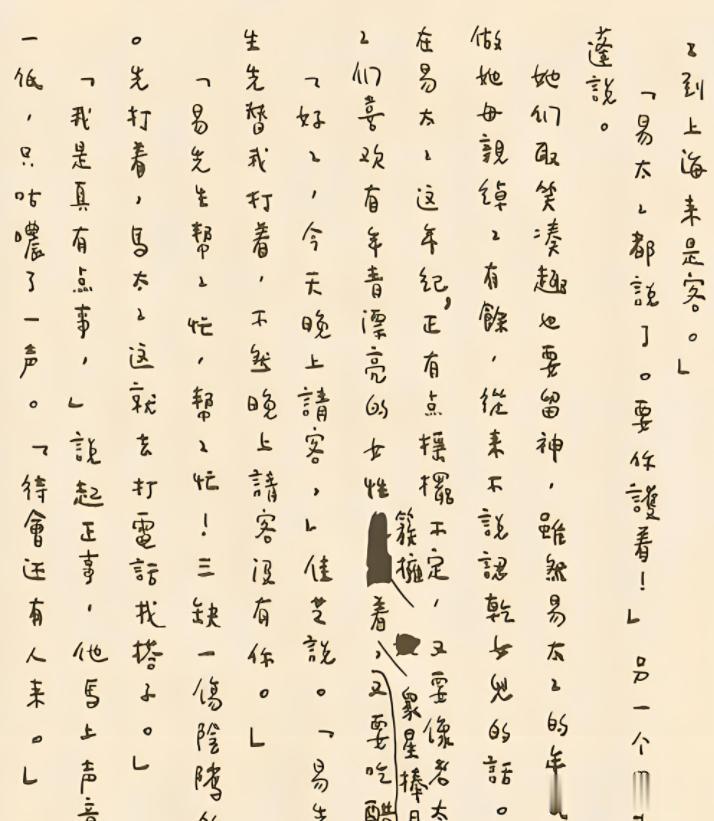 々到上海来是客。」
「易太々都說了。要你護着！」另一个
蓬說。
她们取笑凑趣也要留神，雖然易太々的年
做她母親綽々有餘，從来不說認乾女兒的話。
在易太々这年纪，正有点摇擺不定，又要像老太
簇擁 眾星捧月
々们喜欢有年青漂亮的女性着，又要吃醋
「好々，今天晚上請客，」佳芝說。「易先
生先替我打着，不然晚上請客没有你。」
「易先生幫々忙，幫々忙！三缺一傷陰隲
。先打着，馬太々这就去打電話找搭子。」
「我是真有点事，」說起正事，他馬上声音
一低，只咕噥了一声。「待會还有人来。」